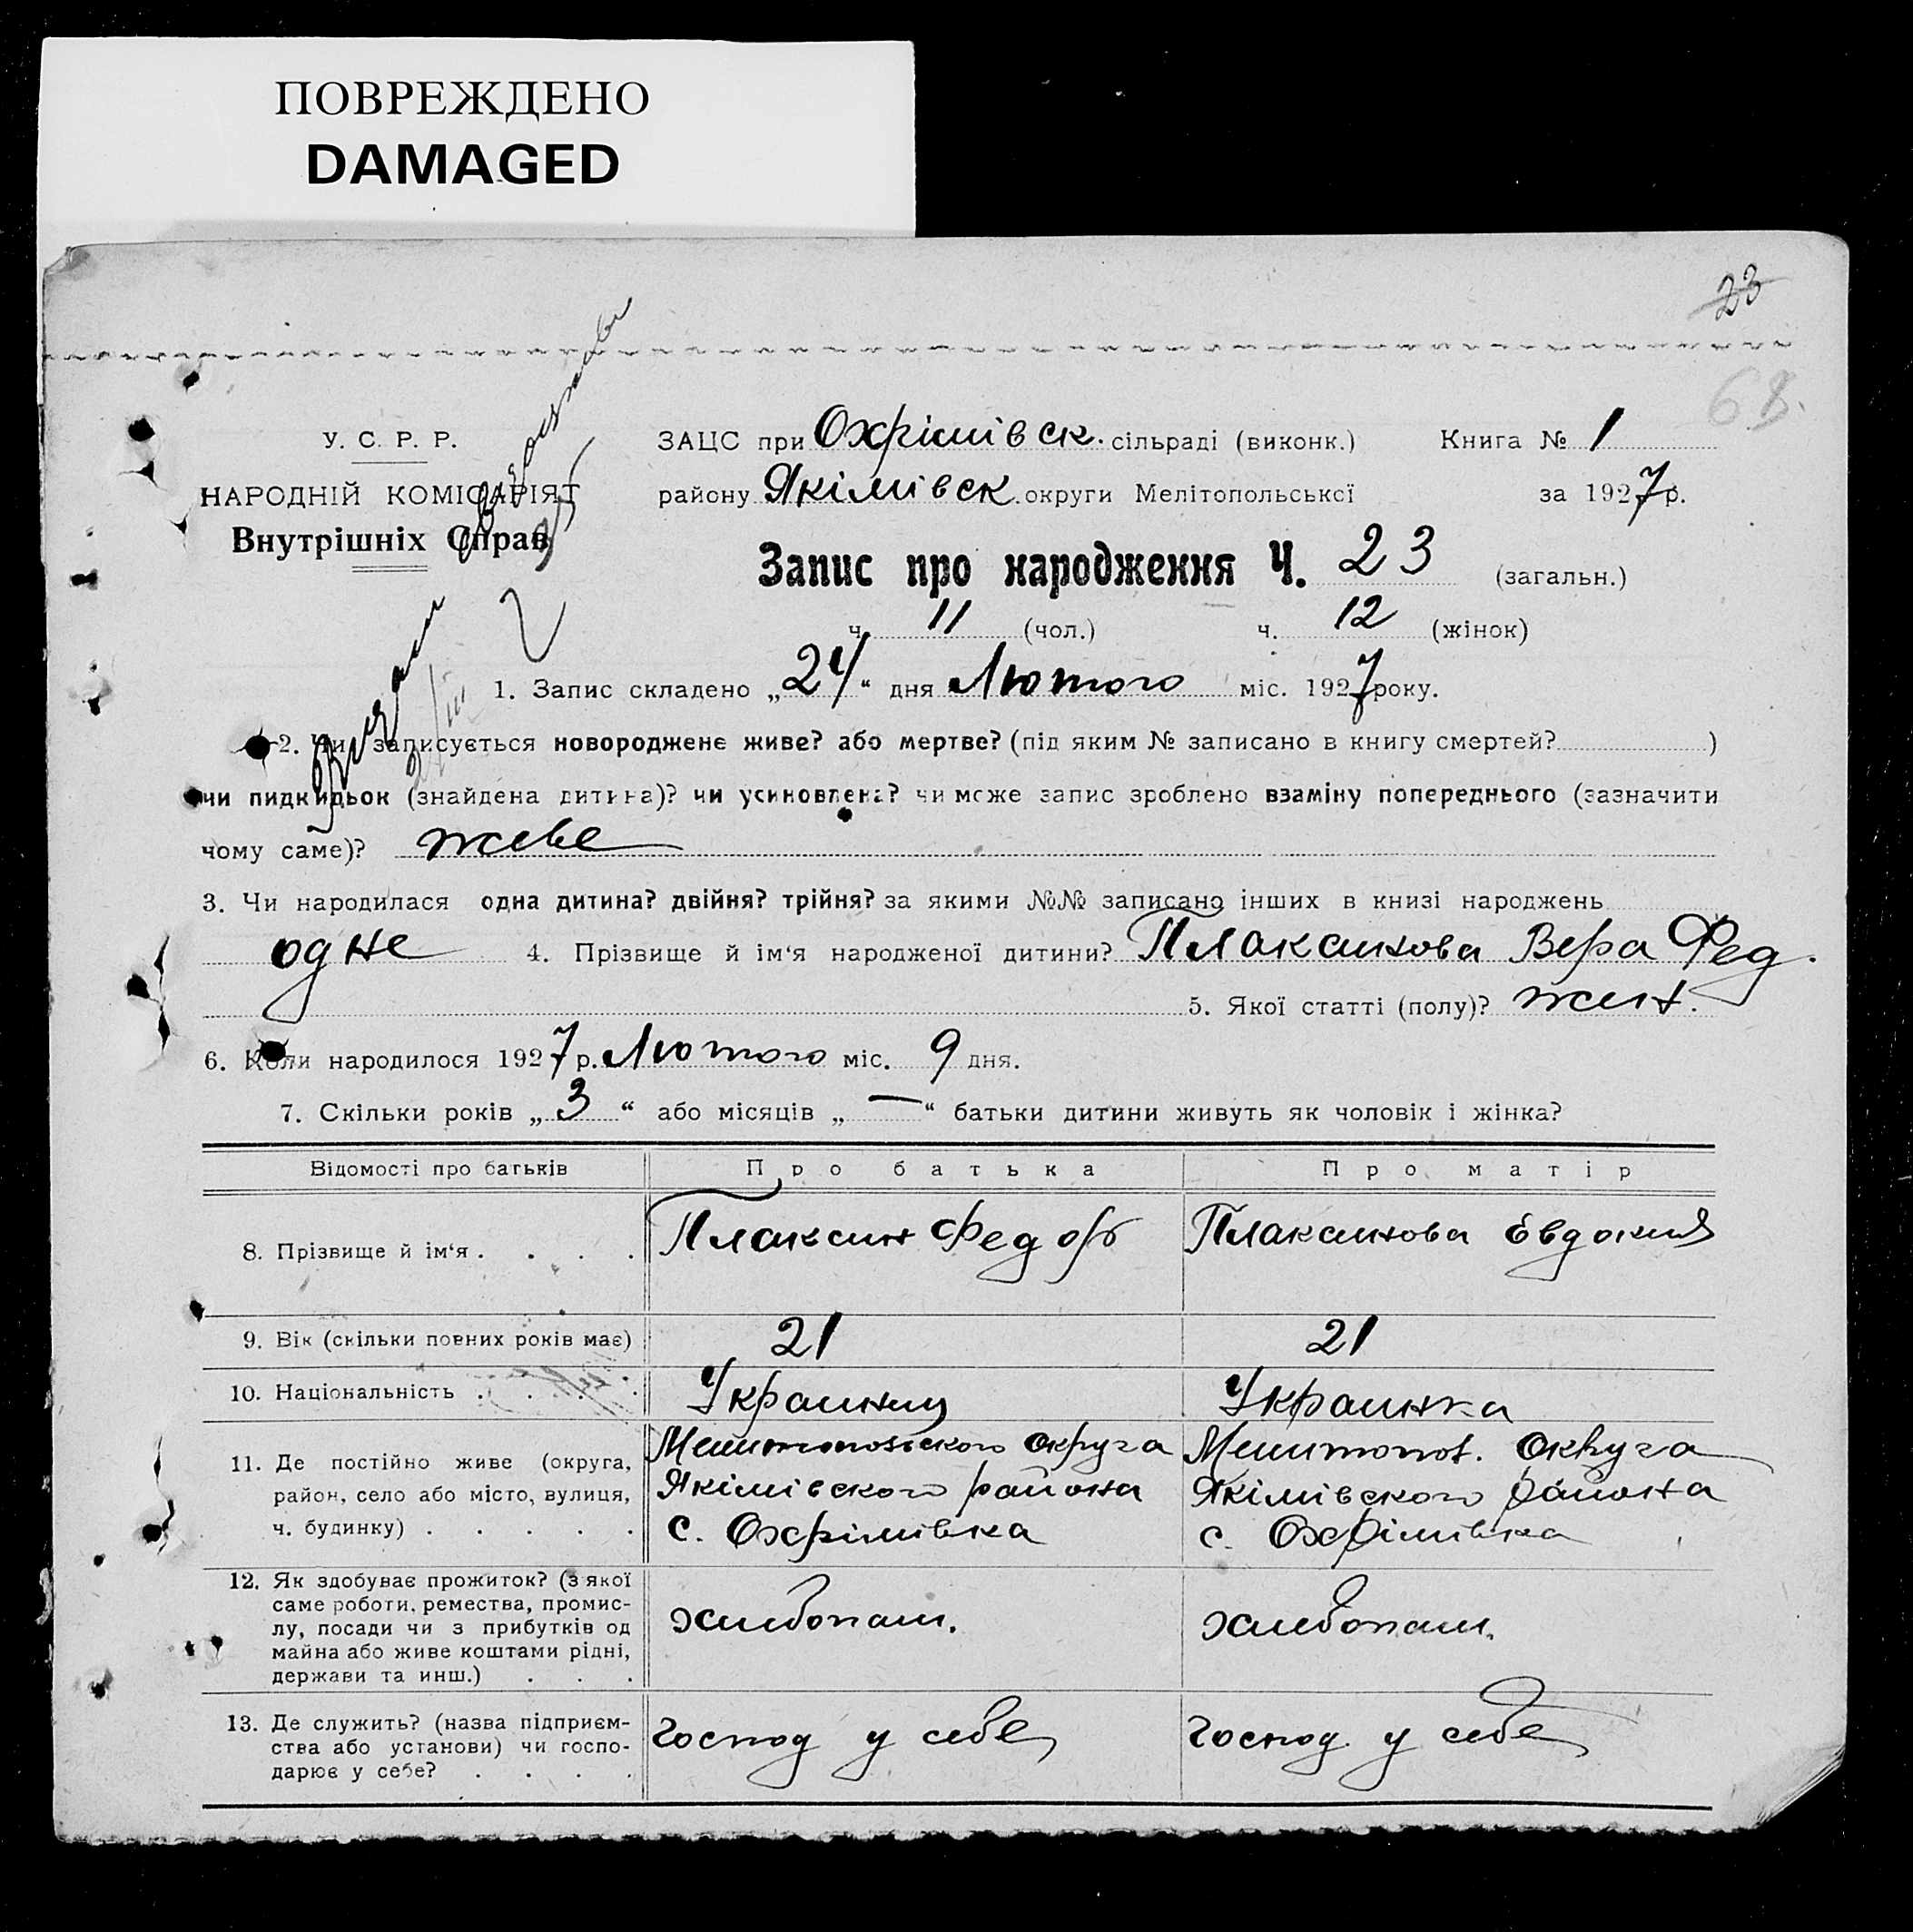 ПОВРЕЖДЕНО
DAMAGED
23
68.
У. С. Р. Р.
НАРОДНІЙ КОМІСАРІЯТ
Внутрішніх Справ
ЗАЦС при Охрімівск. сільраді (виконк.) Книга № 1
району Якімівск. округи Мелітопольської за 1927 р.
Запис про народження Ч. 23 (загальн.)
ч. 11 (чол.) ч. 12 (жінок)
1. Запис складено „24“ дня Лютого міс. 1927 року.
2. Чи записується новороджене живе? або мертве? (під яким № записано в книгу смертей? )
чи пидкидьок (знайдена дитина)? чи усиновлена? чи може запис зроблено взаміну попереднього (зазначити
чому саме)? живе
3. Чи народилася одна дитина? двійня? трійня? за якими №№ записано інших в книзі народжень
одне 4. Прізвище й ім‘я народженої дитини? Плаксинова Вера Фед.
5. Якої статті (полу)? жин.
6. Коли народилося 1927 р. Лютого міс. 9 дня.
7. Скільки років „3“ або місяців „—“ батьки дитини живуть як чоловік і жінка?
Відомості про батьків Про батька Про матір
8. Прізвище й ім‘я . . . . Плаксин Федорь Плаксинова Евдокия
9. Вік (скільки повних років має) 21 21
10. Національність . . . . Украинец Украинка
11. Де постійно живе (округа, Мелитопольского Округа Мелитопол. Округа
район, село або місто, вулиця, Якімівского района Якімівского района
ч. будинку) . . . . . с. Охрімівка с. Охрімівка
12. Як здобуває прожиток? (з якої
саме роботи, ремества, промис-
лу, посади чи з прибутків од хлибопаш. хлибопаш.
майна або живе коштами рідні,
держави та инш.) . . .
13. Де служить? (назва підприєм-
ства або установи) чи госпо- господ у себе господ. у себе
дарює у себе? . . . .